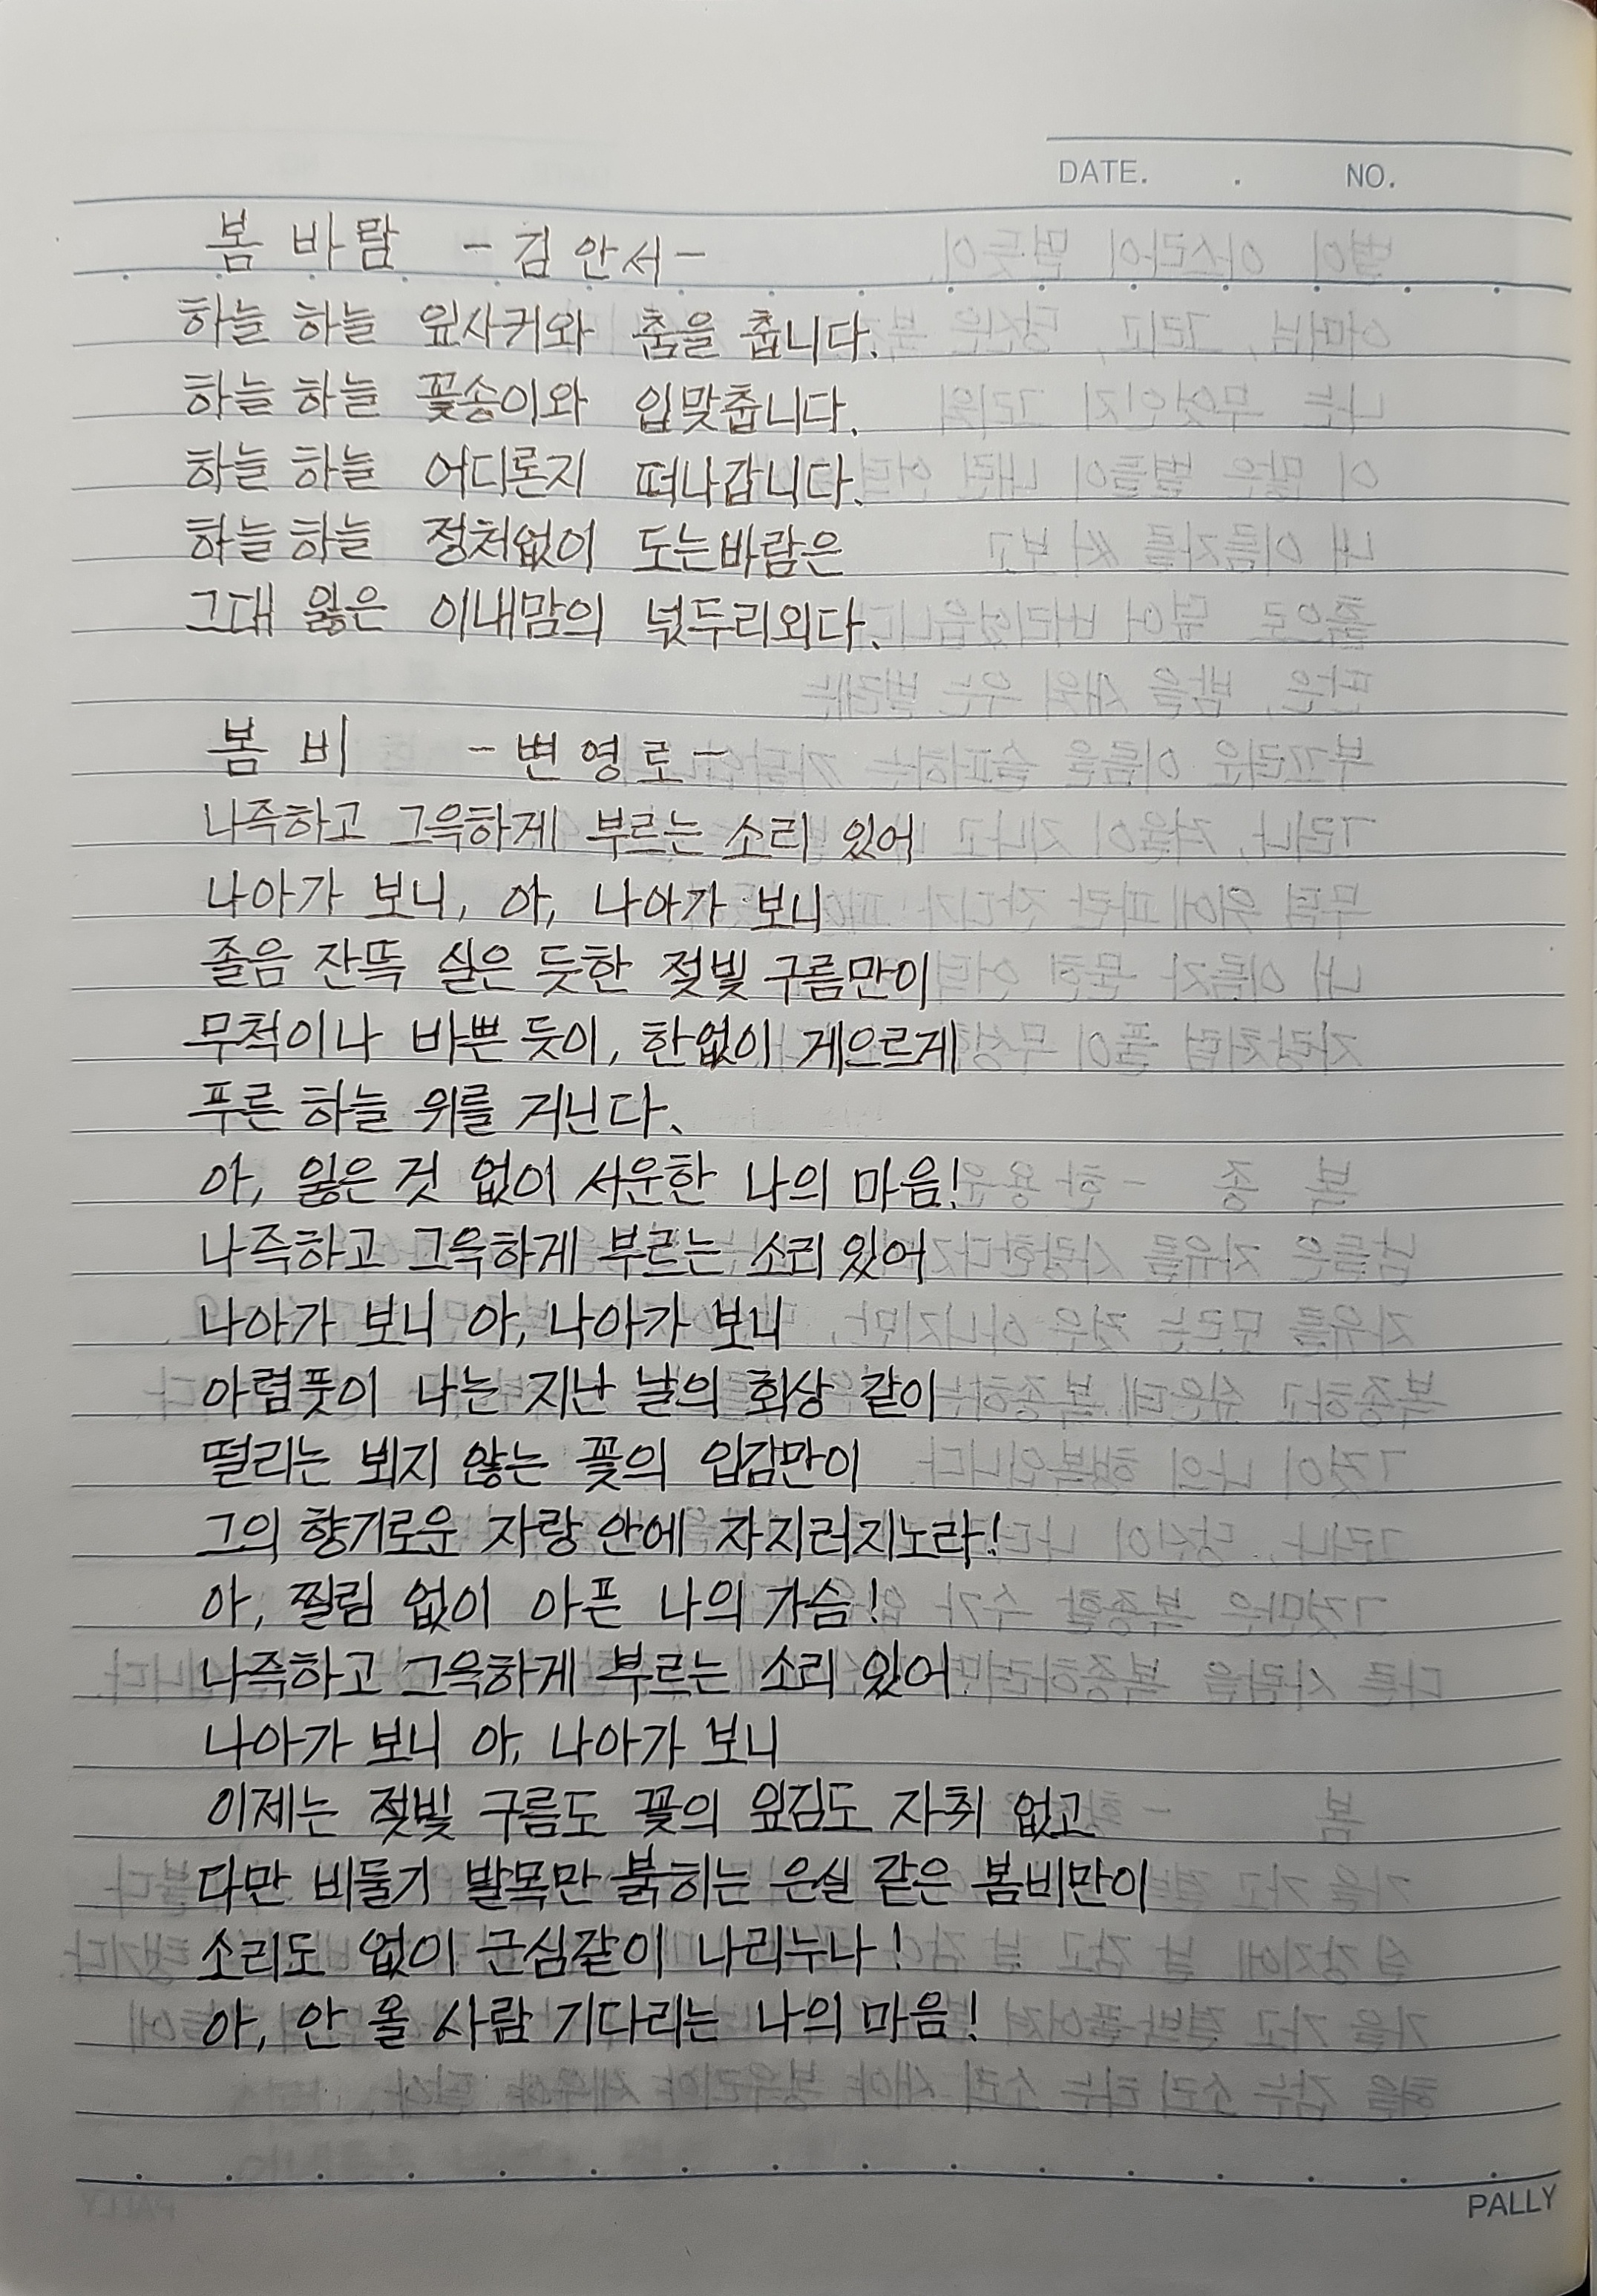 DATE. . NO.
봄 바람 - 김 안 서 -
하늘 하늘 잎사귀와 춤을 춥니다.
하늘 하늘 꽃송이와 입맞춥니다.
하늘 하늘 어디론지 떠나갑니다.
하늘 하늘 정처없이 도는바람은
그대 잃은 이내맘의 넋두리외다.
봄 비 - 변 영 로 -
나즉하고 그윽하게 부르는 소리 있어
나아가 보니, 아, 나아가 보니
졸음 잔뜩 실은 듯한 젖빛 구름만이
무척이나 바쁜 듯이, 한없이 게으르게
푸른 하늘 위를 거닌다.
아, 잃은 것 없이 서운한 나의 마음!
나즉하고 그윽하게 부르는 소리 있어
나아가 보니 아, 나아가 보니
아렴풋이 나는 지난 날의 회상 같이
떨리는 뵈지 않는 꽃의 입김만이
그의 향기로운 자랑 안에 자지러지노라!
아, 찔림 없이 아픈 나의 가슴!
나즉하고 그윽하게 부르는 소리 있어
나아가 보니 아, 나아가 보니
이제는 젖빛 구름도 꽃의 입김도 자취 없고
다만 비둘기 발목만 붉히는 은실 같은 봄비만이
소리도 없이 근심같이 나리누나!
아, 안 올 사람 기다리는 나의 마음!
PALLY